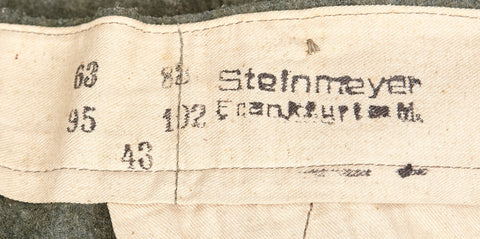 63
95 102
43
Steinmeyer
Frankfurt a M.